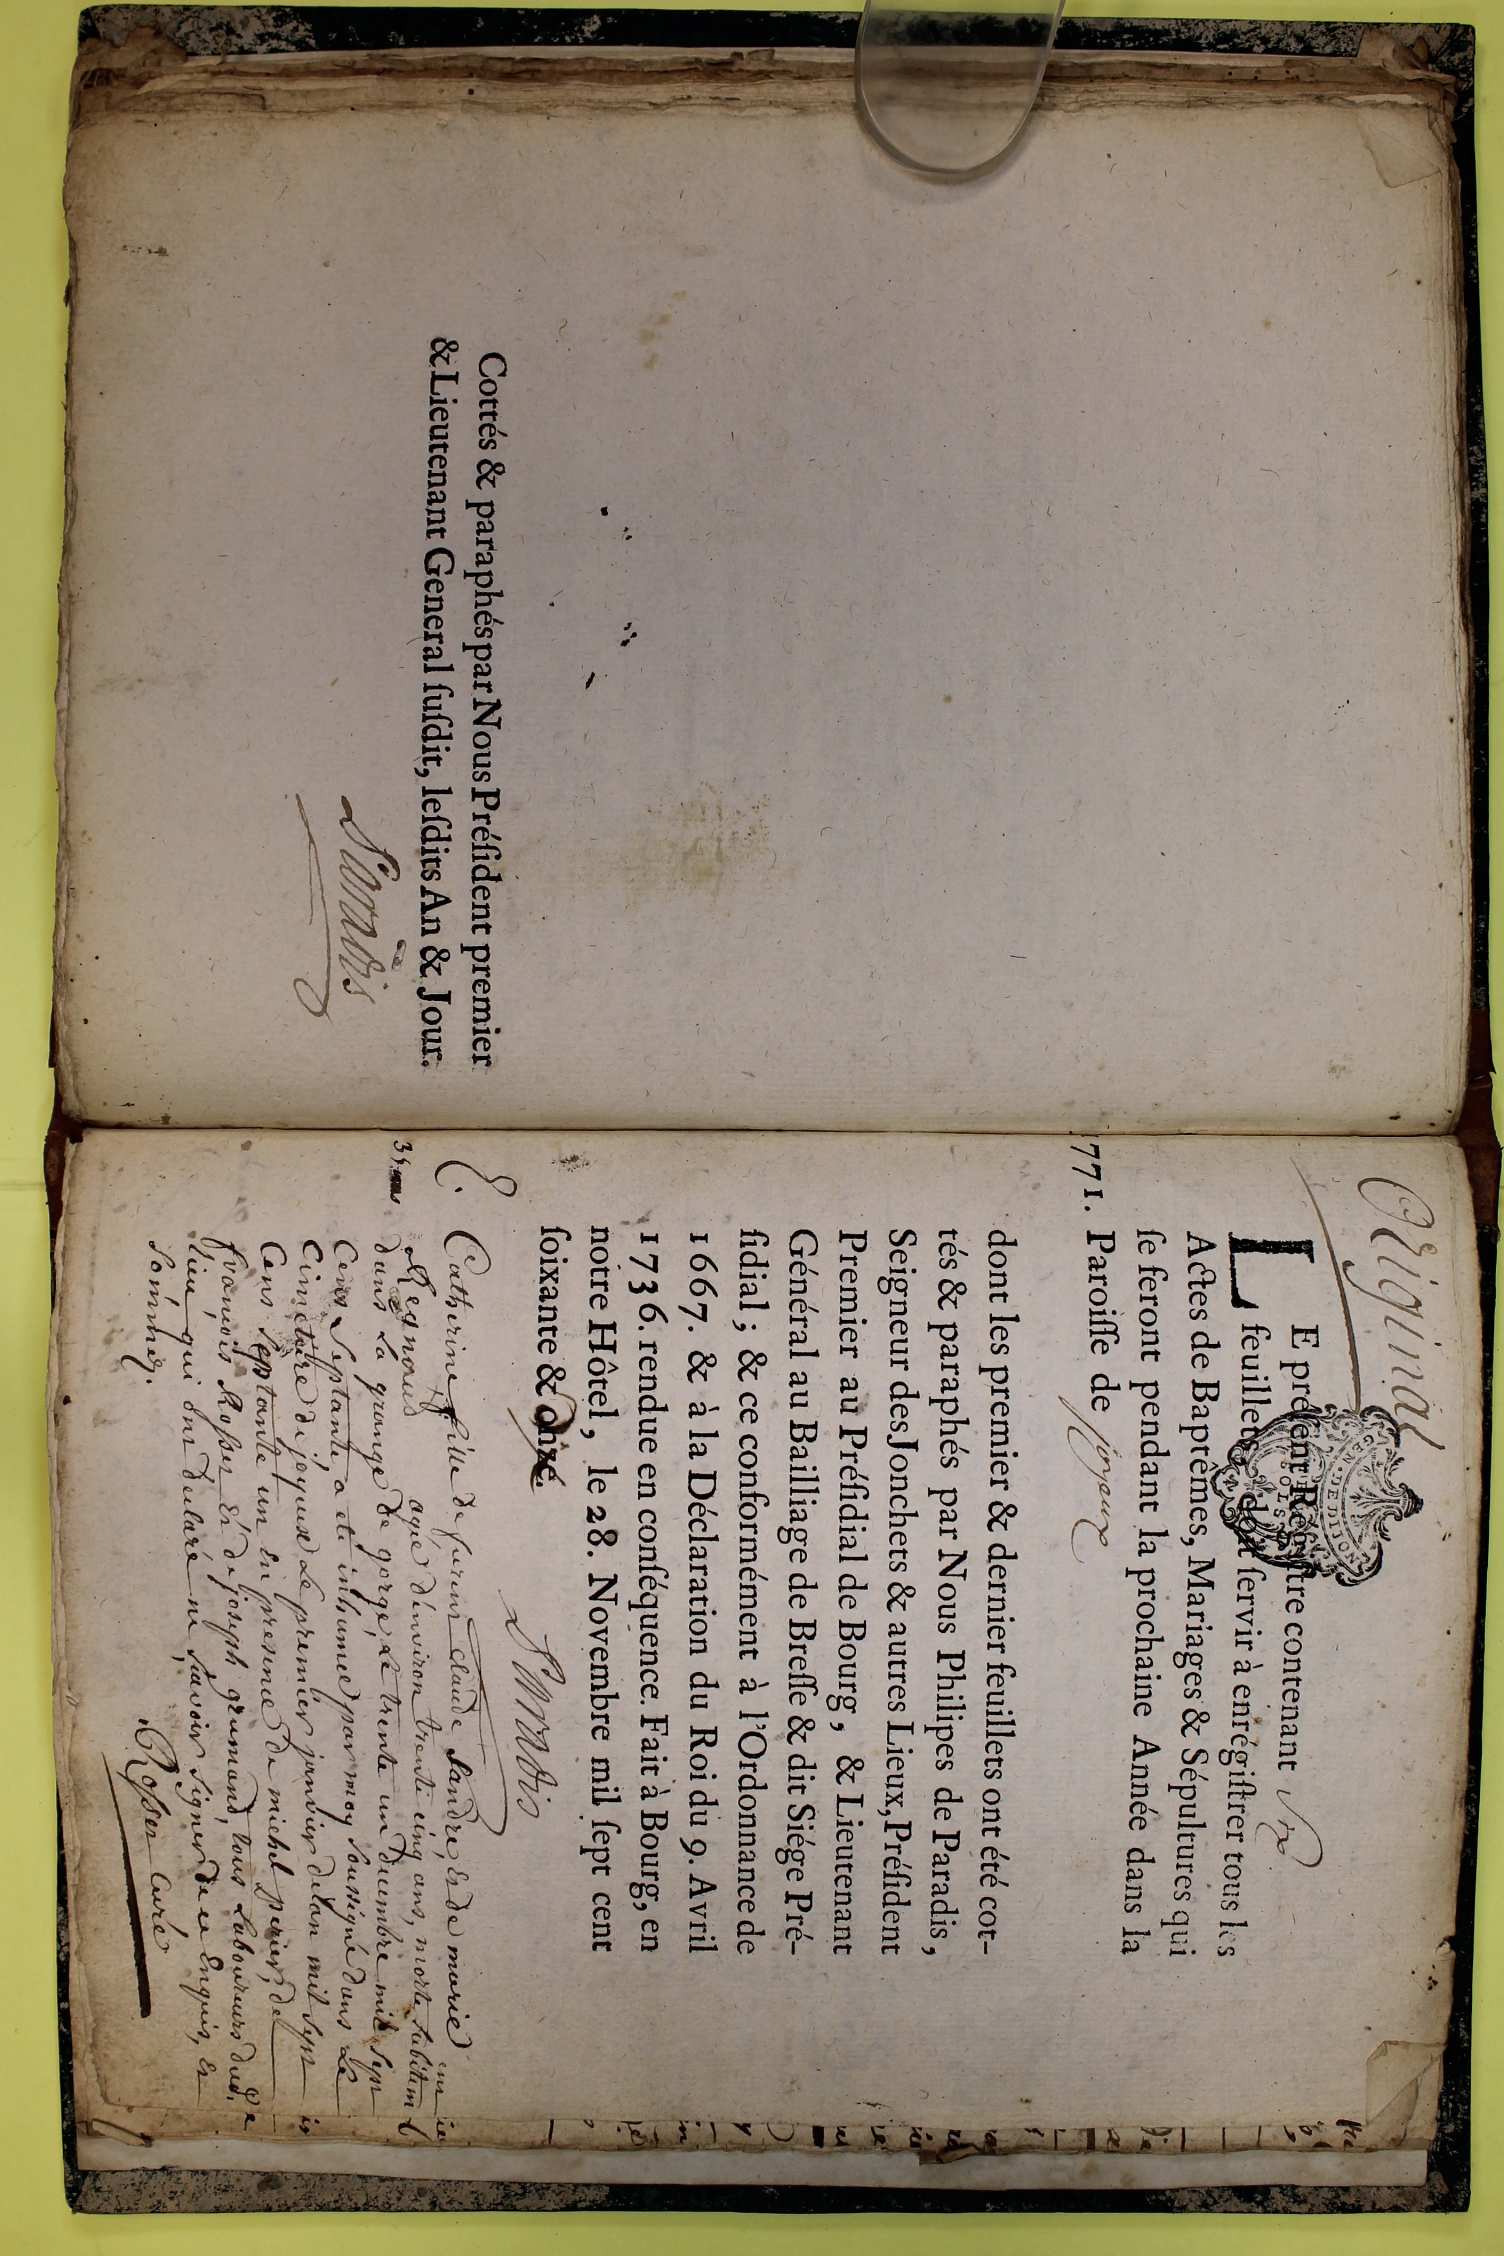 Cottés & paraphés par Nous Préſident premier
& Lieutenant General ſuſdit, leſdits An & Jour.
Original
GEN. DE DIJON
LE préſent Régiſtre contenant Six
feuillets, doit ſervir à enrégiſtrer tous les
Actes de Baptêmes, Mariages & Sépultures qui
ſe feront pendant la prochaine Année dans la
1771. Paroiſſe de joyeux
dont les premier & dernier feuillets ont été cot-
tés & paraphés par Nous Philipes de Paradis,
Seigneur des Jonchets & autres Lieux, Préſident
Premier au Préſidial de Bourg, & Lieutenant
Général au Bailliage de Breſſe & dit Siége Pré-
ſidial; & ce conformément à l'Ordonnance de
1667. & à la Déclaration du Roi du 9. Avril
1736. rendue en conſéquence. Fait à Bourg, en
notre Hôtel, le 28. Novembre mil ſept cent
ſoixante & dix.
E. Catherine fille de furent claude Landre, et de marie
agée d'environ trente cinq ans, morte subitem.t
dans la grange de gorge, le trente un decembre mil sept
cens septante, a eté inhumée par moy soussigné dans le
cimetiere de joyeux le premier janvier de l'an mil sept
cens septante un en presence de michel perier, de
françois Rosset et de joseph grumand, tous laboureurs dud.
lieu qui ont declaré ne sçavoir signer de ce enquis, et
sommés.
Rosset curé